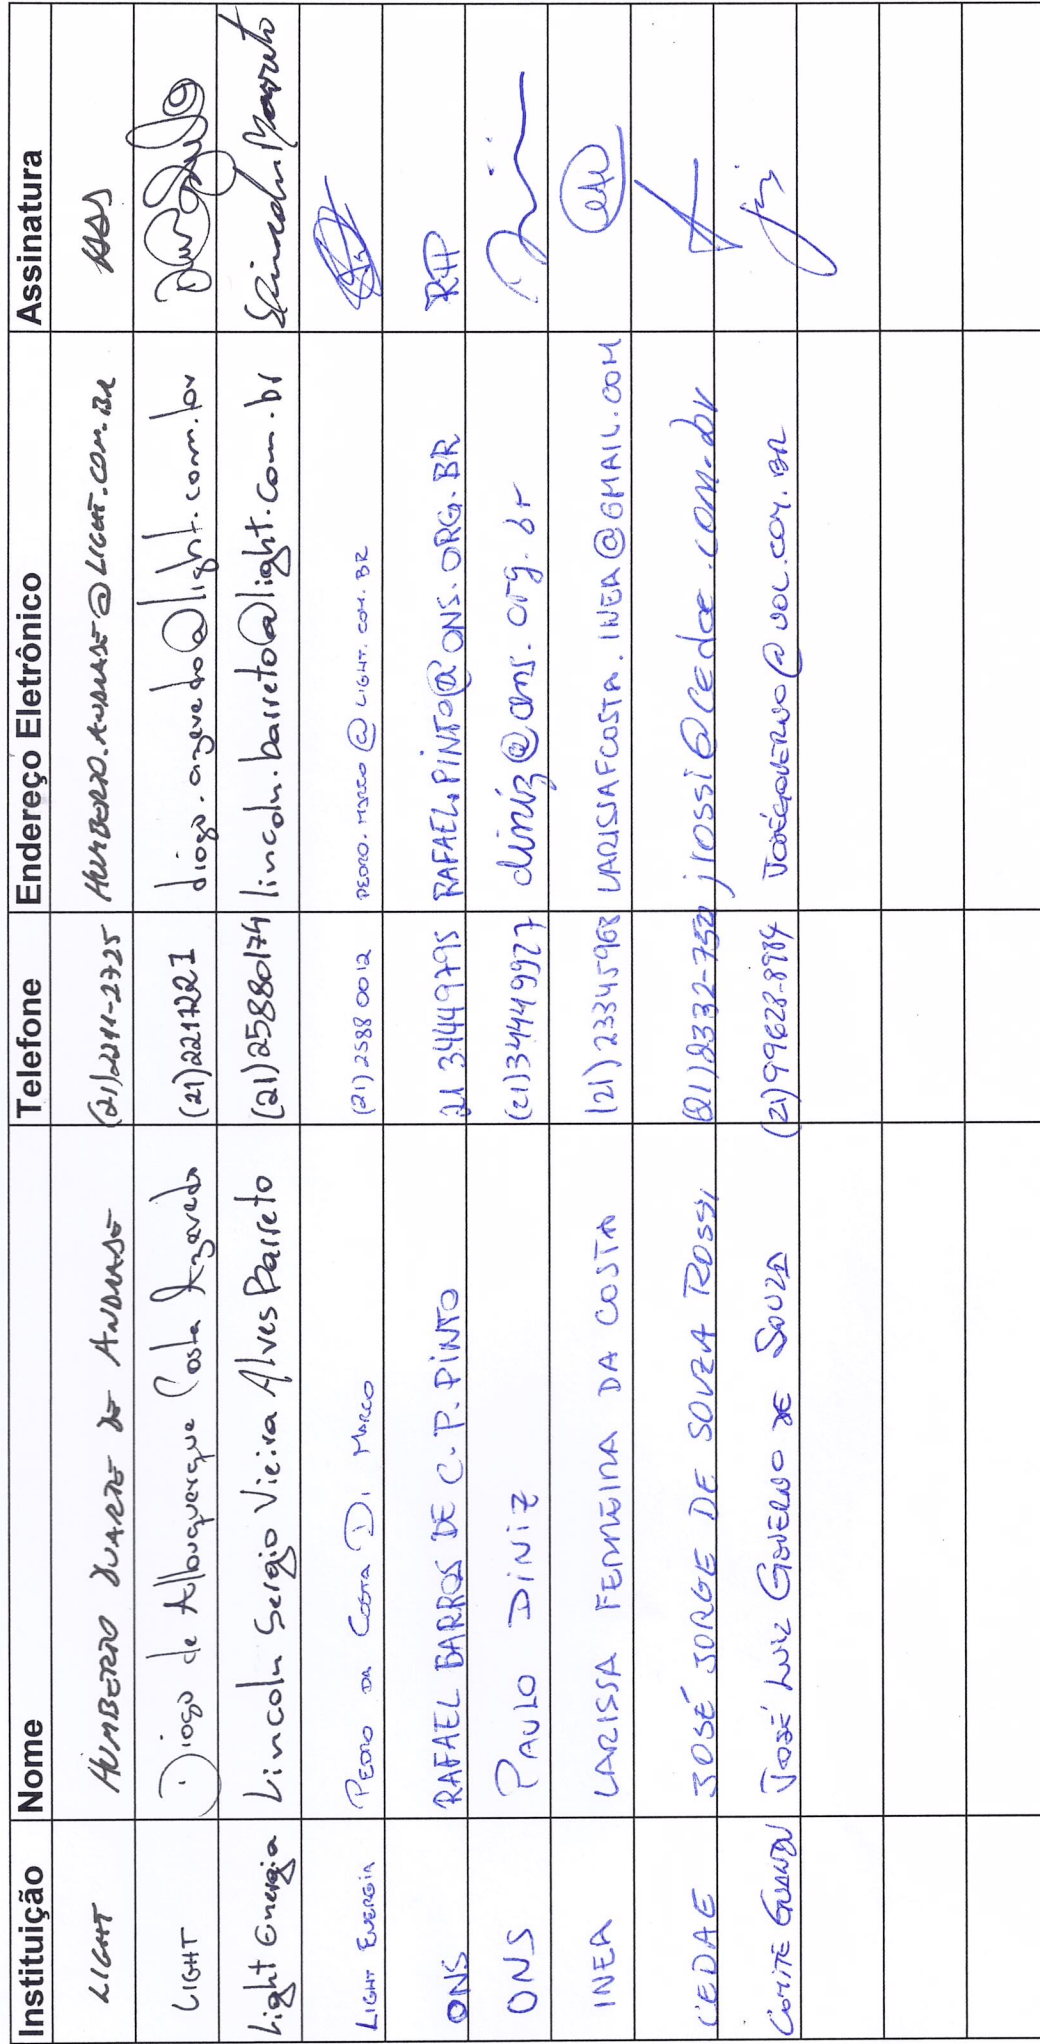 Instituição Nome Telefone Endereço Eletrônico Assinatura
LIGHT HUMBERTO DUARTE DE ANDRADE (21)2211-2725 HUMBERTO.ANDRADE@LIGHT.COM.BR
LIGHT Diogo de Albuquerque Costa Azevedo (21)2217221 diogo.azevedo@light.com.br
Light Energia Lincoln Sergio Vieira Alves Barreto (21)25880174 lincoln.barreto@light.com.br Lincoln Barreto
LIGHT ENERGIA PEDRO DA COSTA DI MARCO (21) 2588 0012 PEDRO.MARCO@LIGHT.COM.BR
ONS RAFAEL BARROS DE C. P. PINTO 21 34449795 RAFAEL.PINTO@ONS.ORG.BR RHP
ONS PAULO DINIZ (21)34449927 diniz@ons.org.br
INEA LARISSA FERREIRA DA COSTA (21) 23345968 LARISSAFCOSTA.INEA@GMAIL.COM
CEDAE JOSÉ JORGE DE SOUZA ROSSI jrossi@cedae.com.br
COMITÊ GUANDU JOSÉ LUIZ GOVERNO DE SOUZA (21)99628-8984 JOSÉGOVERNO@UOL.COM.BR